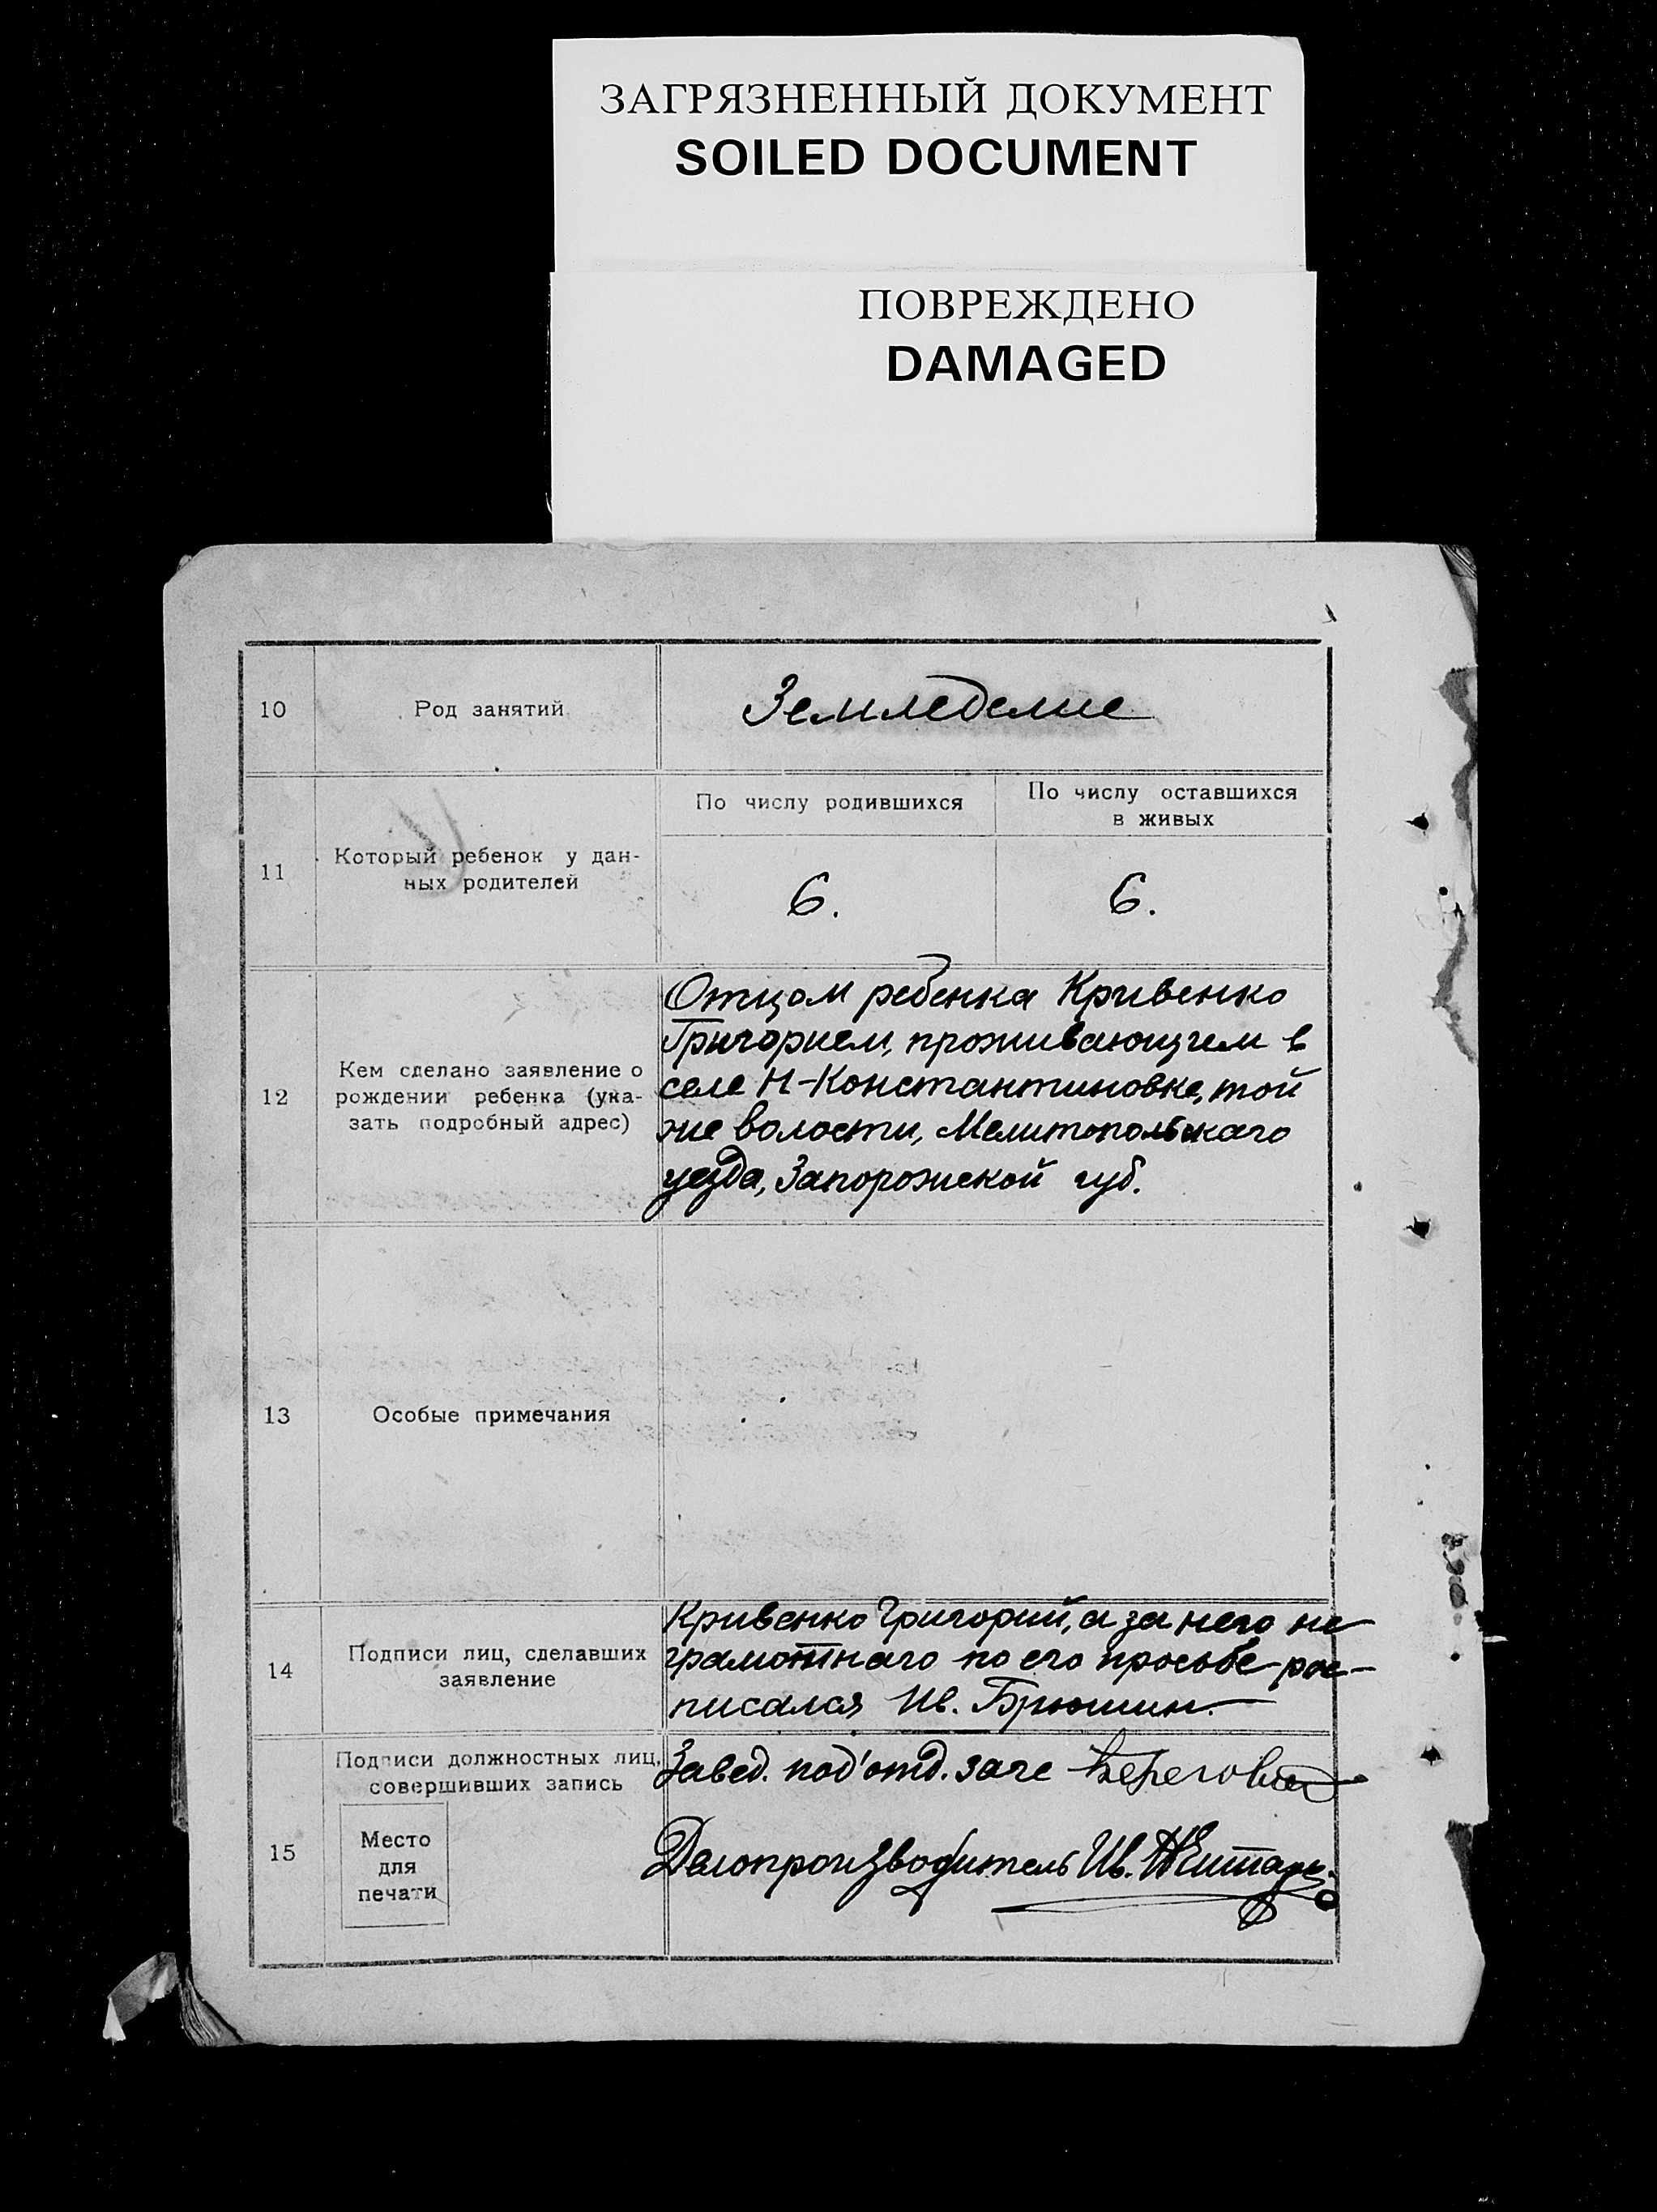 ЗАГРЯЗНЕННЫЙ ДОКУМЕНТ
SOILED DOCUMENT
ПОВРЕЖДЕНО
DAMAGED
10
Род занятий
Земледелие
11
Который ребенок у дан-
ных родителей
По числу родившихся
По числу оставшихся
в живых
6.
6.
12
Кем сделано заявление о
рождении ребенка (ука-
зать подробный адрес)
Отцом ребенка Кривенко
Григорием, проживающим в
селе Н-Константиновке, той
же волости, Мелитопольскаго
уезда, Запорожской губ.
13
Особые примечания
14
Подписи лиц, сделавших
заявление
Кривенко Григорий, а за него не
грамотнаго по его просьбе рос-
писался Ив. Брюшин.
15
Подписи должностных лиц,
совершивших запись
Место
для
печати
Завед. под'отд. загс
Делопроизводитель Ив.